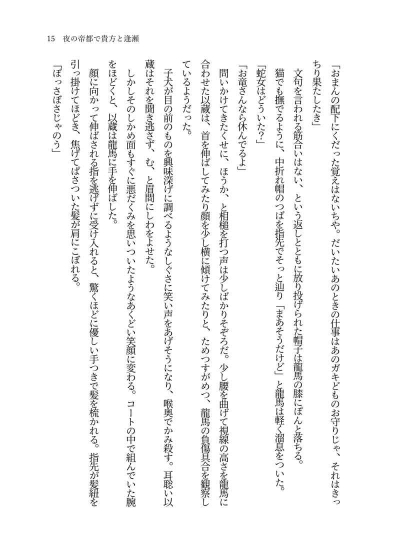 15　夜の帝都で貴方と逢瀬
「おまんの配下にくだった覚えはないちや。だいたいあのときの仕事はあのガキどものお守りじゃ、それはきっ
ちり果たしたき」
文句を言われる筋合いはない、という返しとともに放り投げられた帽子は龍馬の膝にぽんと落ちる。
猫でも撫でるように、中折れ帽のつばを指先でそっと辿り「まあそうだけど」と龍馬は軽く溜息をついた。
「蛇女はどういた？」
「お竜さんなら休んでるよ」
問いかけてきたくせに、ほうか、と相槌を打つ声は少しばかりぞぞろだ。少し腰を曲げて視線の高さを龍馬に
合わせた以蔵は、首を伸ばしてみたり顔を少し横に傾けてみたりと、ためつすがめつ、龍馬の負傷具合を観察し
ているようだった。
子犬が目の前のものを興味深げに調べるようなしぐさに笑い声をあげそうになり、喉奥でかみ殺す。耳聡い以
蔵はそれを聞き逃さず、む、と眉間にしわをよせた。
しかしそのしかめ面もすぐに悪だくみを思いついたようなあくどい笑顔に変わる。コートの中で組んでいた腕
をほどくと、以蔵は龍馬に手を伸ばした。
顔に向かって伸ばされる指を逃げずに受け入れると、驚くほどに優しい手つきで髪を梳かれる。指先が髪紐を
引っ掛けてほどき、焦げてぱさついた髪が肩にこぼれる。
「ぱっさぱさじゃのう」